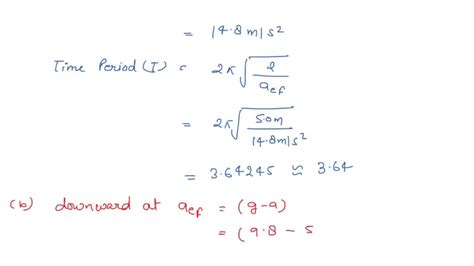 = 14.8 m/s²
Time Period (T) = 2π √(l / a_ef)
= 2π √(5.0m / 14.8m/s²)
= 3.64245 ≈ 3.64
(b) downward at a_ef = (g-a)
= (9.8 - 5